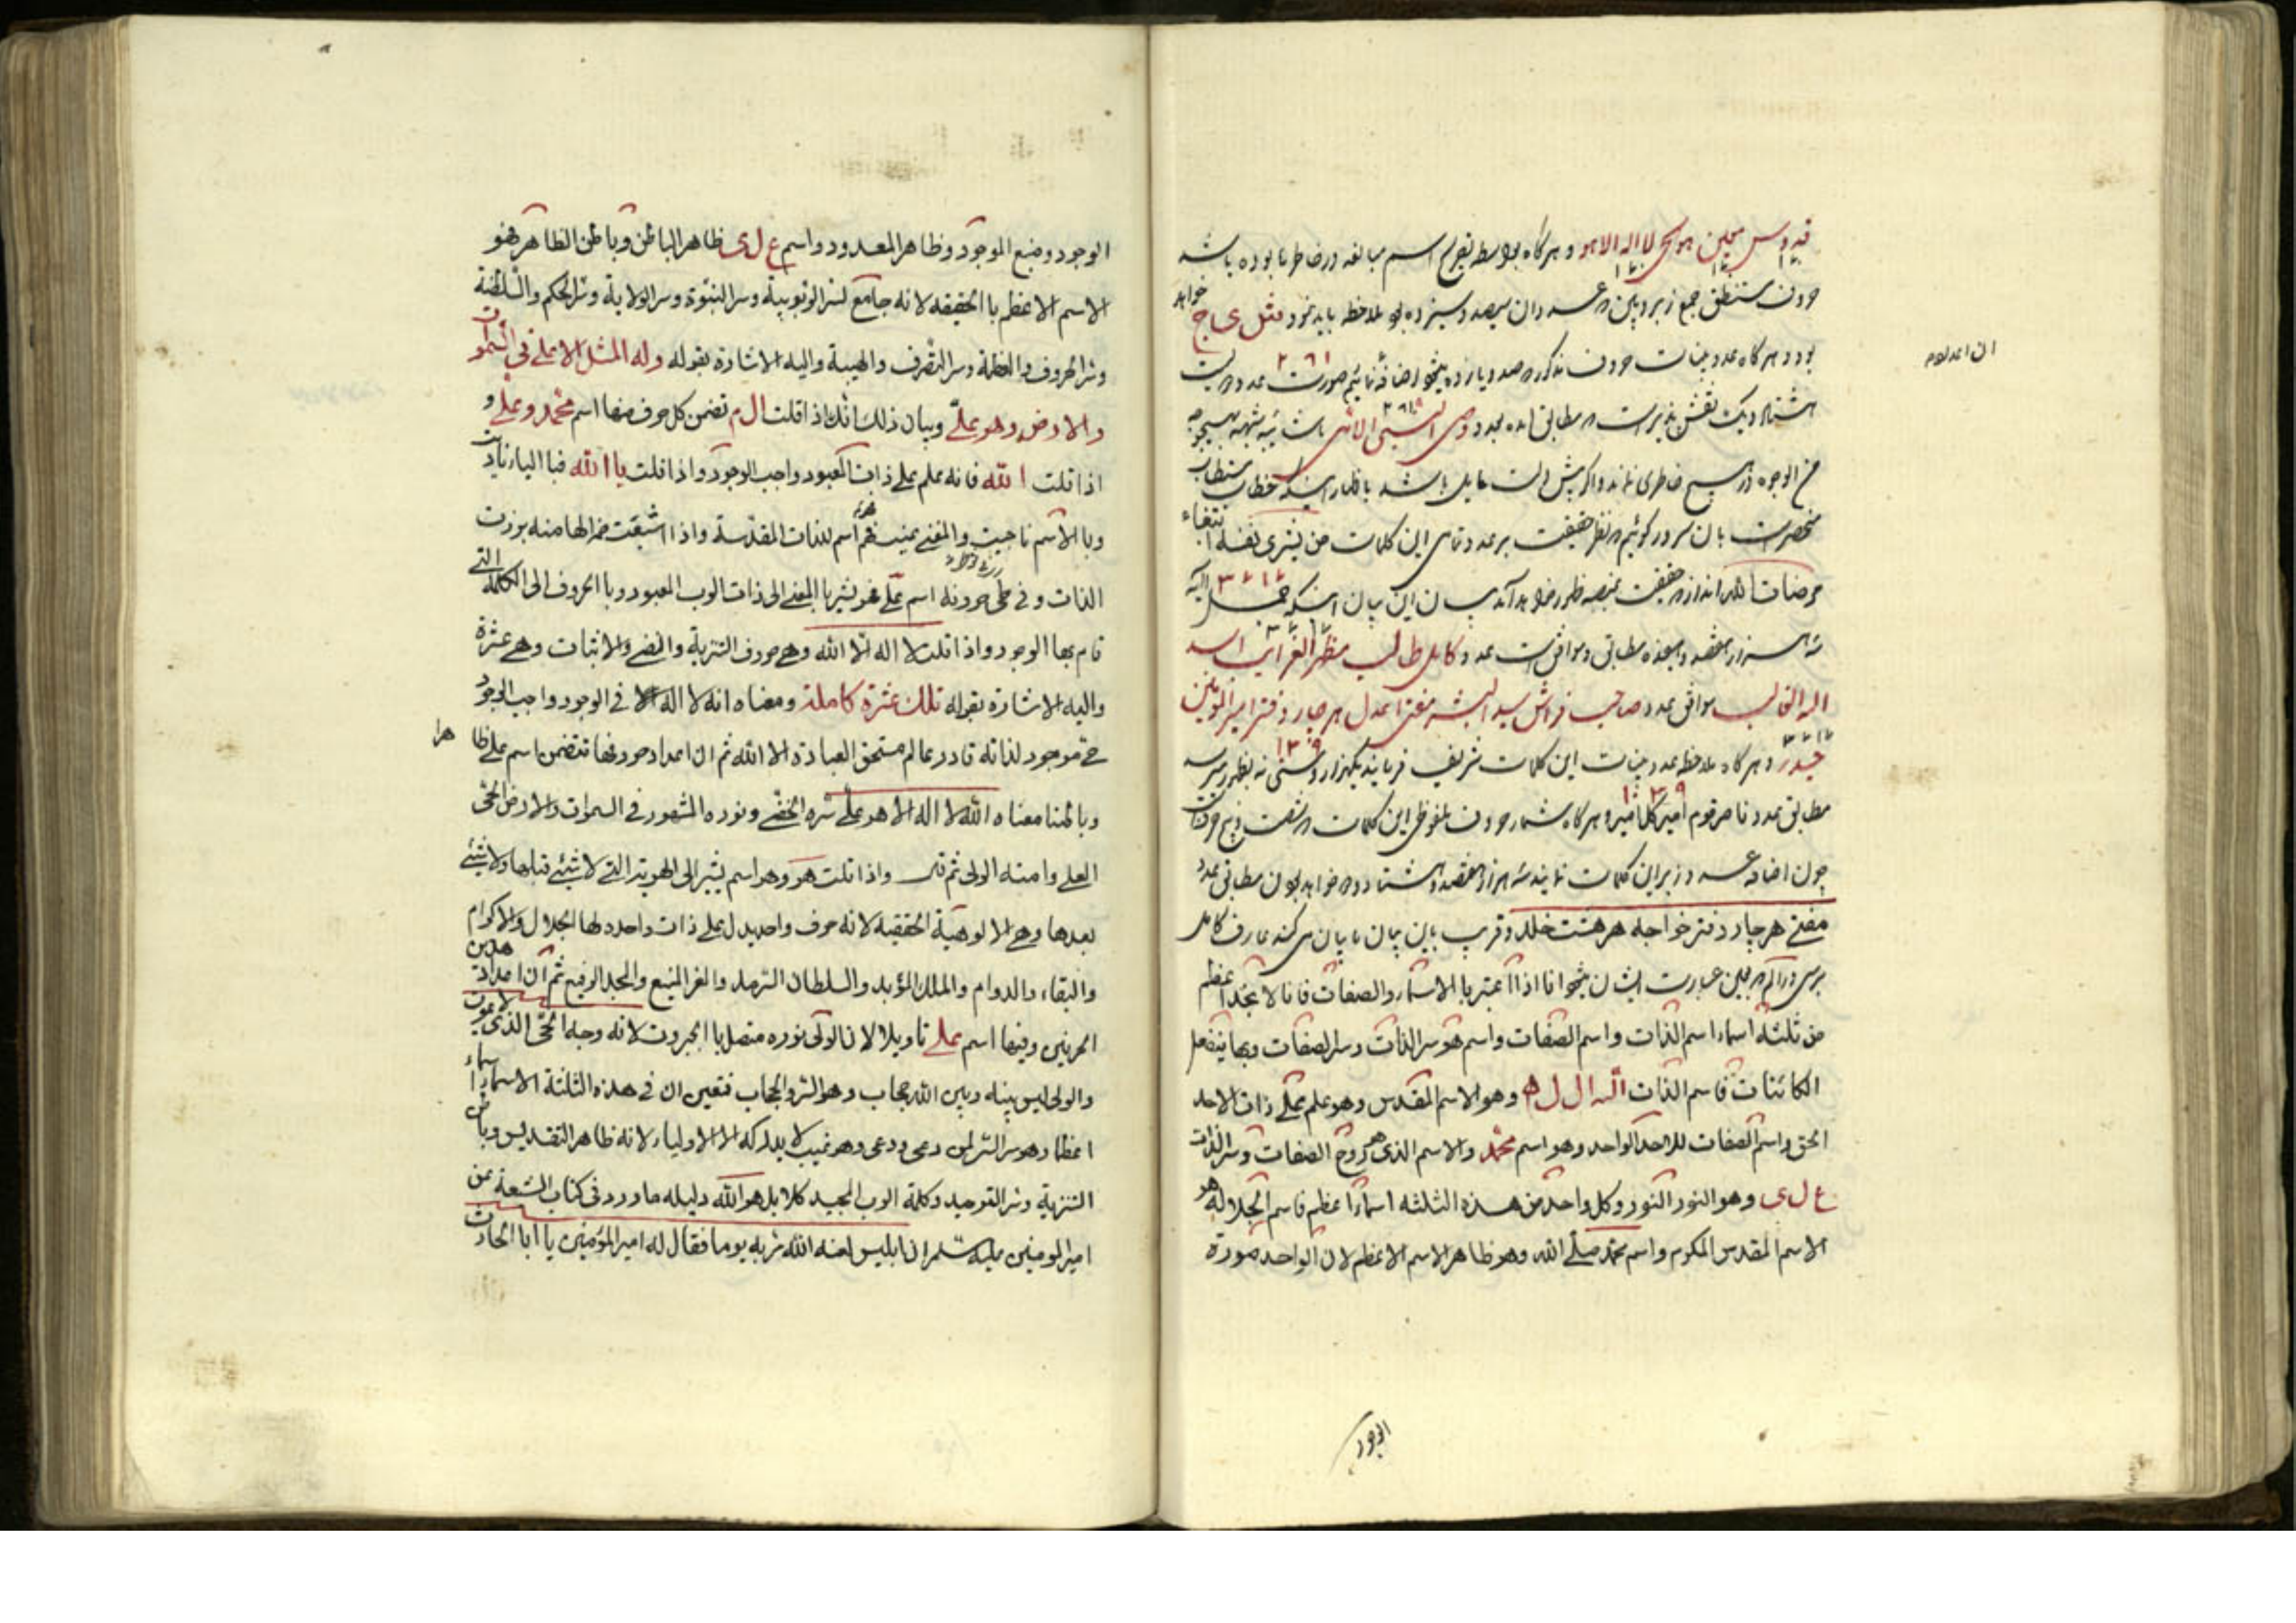 قدوس مبین هو الحی لا اله الا هو و هرگاه بواسطه اسم مبالغه در خاطرها بوده باشد
حروف مستنطق جمع زبر و بین و عدد آن سیصد و سیزده ملاحظه باید نمود مثل خواهد
بود و هرگاه عدد بینات حروف مذکوره صد و یازده بنحو اضافه نمائیم صورت عدد
هشتاد و یک نقش پذیر است مطابق آمده بعدد وصی النبی
من الوجوه در هیچ خاطری نماند و اگر باشد باظهار اینکه خطاب مستطاب
منحصرست بآن سرور گوئیم حقیقت بر عدد تمامی این کلمات من یشری نفسه ابتغاء
مرضات الله انداز حقیقت ظهور خواهد آمد بیان این بیان اینکه
سه هزار هفتصد و هفده مطابق و موافق است عدد کامل طالب مظهر الغرایب اسد
الله الغالب موافق عدد صاحب فراش سید البشر مفتی عدل هر چار دفتر امیر المؤمنین
حیدر و هرگاه ملاحظه عدد بینات این کلمات شریف فرمایند یکهزار و سی نه بظهور میرسد
مطابق عدد ناصر قوم امیر کل امیر و هرگاه شمار حروف ملفوظی این کلمات که شصت و پنج حرفست
چون اضافه عدد زبر این کلمات نمایند سه هزار و هفتصد و هشتاد و دو خواهد بود مطابق عدد
مفتی هر چار دفتر خواجه هر هشت خلد و قریب باین بیان بیان می کند عارف کامل
برسی عبارت ایشان بنحو انا اذا اعتبرنا الاسماء و الصفات فانا لا نجد اعظم
من ثلثة اسماء اسم الذات و اسم الصفات و اسم هو سر الذات و سر الصفات و بها ینفعل
الکائنات فاسم الذات الله ال ل ه وهو الاسم المقدس وهو علم علی ذات الاحد
الحق واسم الصفات للاحد الواحد وهو اسم محمد والاسم الذی هو روح الصفات وسر الذات
ع ل ی وهو النور النور وکل واحد من هذه الثلثه اسماء اعظم فاسم الجلالة هو
الاسم المقدس المکرم واسم محمد صلی الله وهو ظاهر الاسم الاعظم لان الواحد صورة
الوجود
الوجود ومنبع الموجود وظاهر المعدود واسم ع ل ی ظاهر الباطن وباطن الظاهر فهو
الاسم الاعظم با الحقیقه لانه جامع لسر الربوبیة وسر النبوة وسر الولایة وسر الحکم والسلطنة
وسر الحروف والعظمة وسر التصرف والهیبة والیه الاشارة بقوله وله المثل الاعلی فی السموات
والارض وهو علی وبیان ذلک انک اذا قلت ال م تضمن کل حرف منها اسم محمد وعلی و
اذا قلت الله فانه علم علی ذات المعبود واجب الوجود واذا قلت یا الله فبا الیاء نادیت
وبا الاسم ناجیت والمعنی عنیت فهو اسم للذات المقدسة واذا اشبعت ضم الهاء منه برزت
الذات وفی طی حروفه اسم علی فهو یشیر با المعنی الی ذات الرب المعبود وبا الحروف الی الکلمة التی
قام بها الوجود واذا قلت لا اله الا الله وهی حروف التنزیة والنفی والاثبات وهی عشرة
والیه الاشارة بقوله تلک عشرة کاملة ومعناه انه لا اله الا فی الوجود واجب الوجود
حی موجود لذاته قادر عالم مستحق العبادة الا الله ثم ان اعداد حروفها تتضمن اسم علی ظاهرا
وباطنا معناه الله لا اله الا هو علی سره الخفی ونوره المشهور فی السموات والارض الحی
العلی وامنه الولی ثم قال واذا قلت هو وهو اسم یشیر الی الهویة التی لا شیئ قبلها ولا شیئ
بعدها وهی الالوهیة الحقیقیه لانه حرف واحد یدل علی ذات واحدة لها الجلال والاکرام
والبقاء والدوام والملک المؤبد والسلطان السرمد والعز المنیع والمجد الرفیع ثم ان اعداد هذین
الحرفین وفیها اسم علی تاویلا لان الولی نوره متصل با الجبروت لانه وجه الحی الذی لا یموت
والولی لیس بینه وبین الله حجاب وهو الستر والحجاب فتعین ان فی هذه الثلثة الاسماء اسماء
اعظما وهو سر السر لمن دعی ودعی وهو غیب لا یدرکه الا الاولیاء لانه ظاهر التقدیس وباطن
التنزیة وسر التوحید وکلمة الرب المجید کلا بل هو الله دلیله ما ورد فی کتاب الشیعة عن
امیر المومنین علیه السلام ان ابلیس لعنه الله مر به یوما فقال له امیر المؤمنین یا ابا الحارث